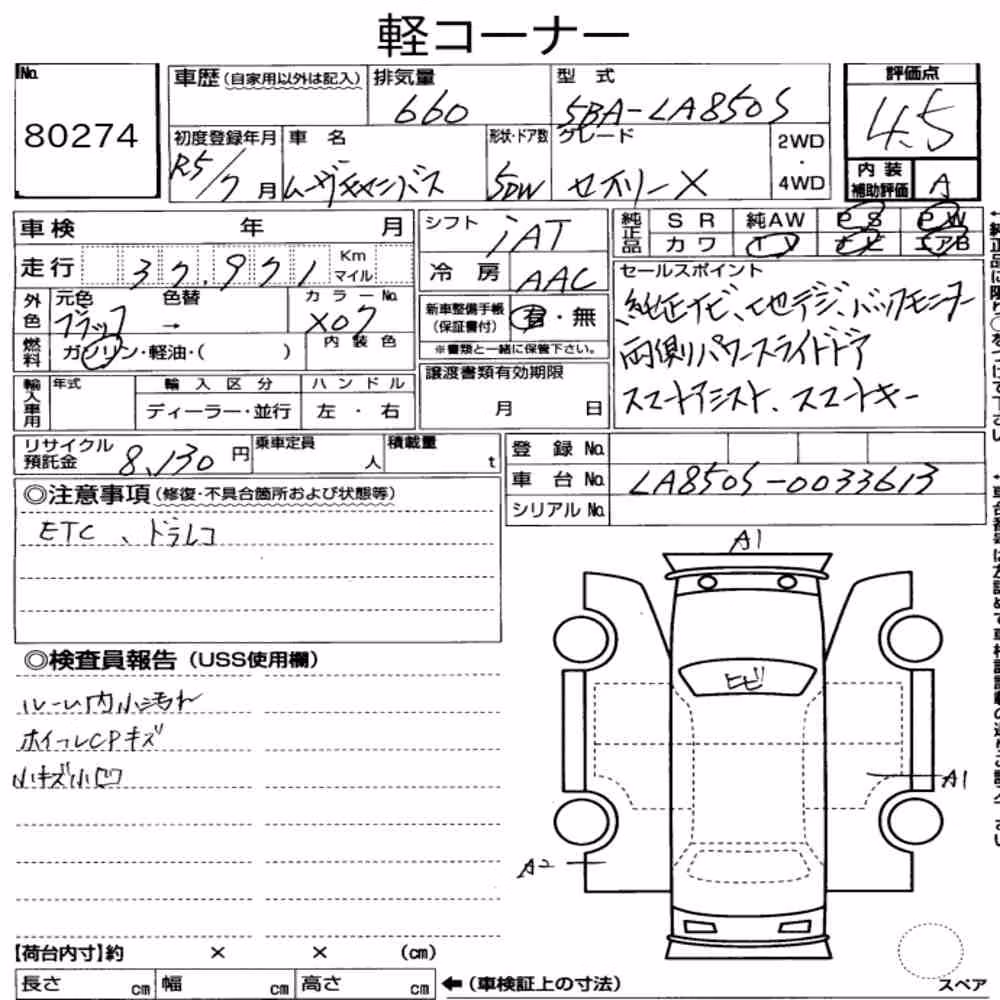 軽コーナー
No.
80274
車歴(自家用以外は記入)
排気量
660
型 式
5BA-LA850S
評価点
4.5
初度登録年月
R5/7月
車 名
ムーヴキャンバス
形状・ドア数
5DW
グレード
セオリーX
2WD
・
4WD
内 装
補助評価
A
車検 年 月
走行 37,971 Km
マイル
外色
元色 色替
ブラック →
カラーNo.
X07
燃料
ガソリン・軽油・( )
内装色
輸入車用
年式
輸入区分
ディーラー・並行
ハンドル
左・右
シフト
iAT
冷 房
AAC
新車整備手帳
(保証書付)
有・無
※書類と一緒に保管下さい。
譲渡書類有効期限
月 日
純正品
SR 純AW PS PW
カワ TV ナビ エアB
セールスポイント
純正ナビ、地デジ、バックモニター
両側パワースライドドア
スマートアシスト、スマートキー
リサイクル
預託金 8,130円
乗車定員
人
積載量
t
登 録 No.
車 台 No. LA850S-0033613
シリアル No.
◎注意事項(修復・不具合箇所および状態等)
ETC、ドラレコ
◎検査員報告(USS使用欄)
ルーム内小汚れ
ホイールCPキズ
小キズ小凹
A1
ヒビ
A1
A2
スペア
【荷台内寸】約 × × (cm)
長さ cm 幅 cm 高さ cm ←(車検証上の寸法)